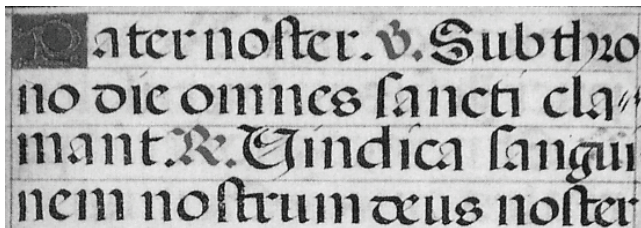 Pater noster. V. Sub thro
no die omnes sancti cla〃
mant. R. Vindica sangui
nem nostrum deus noster